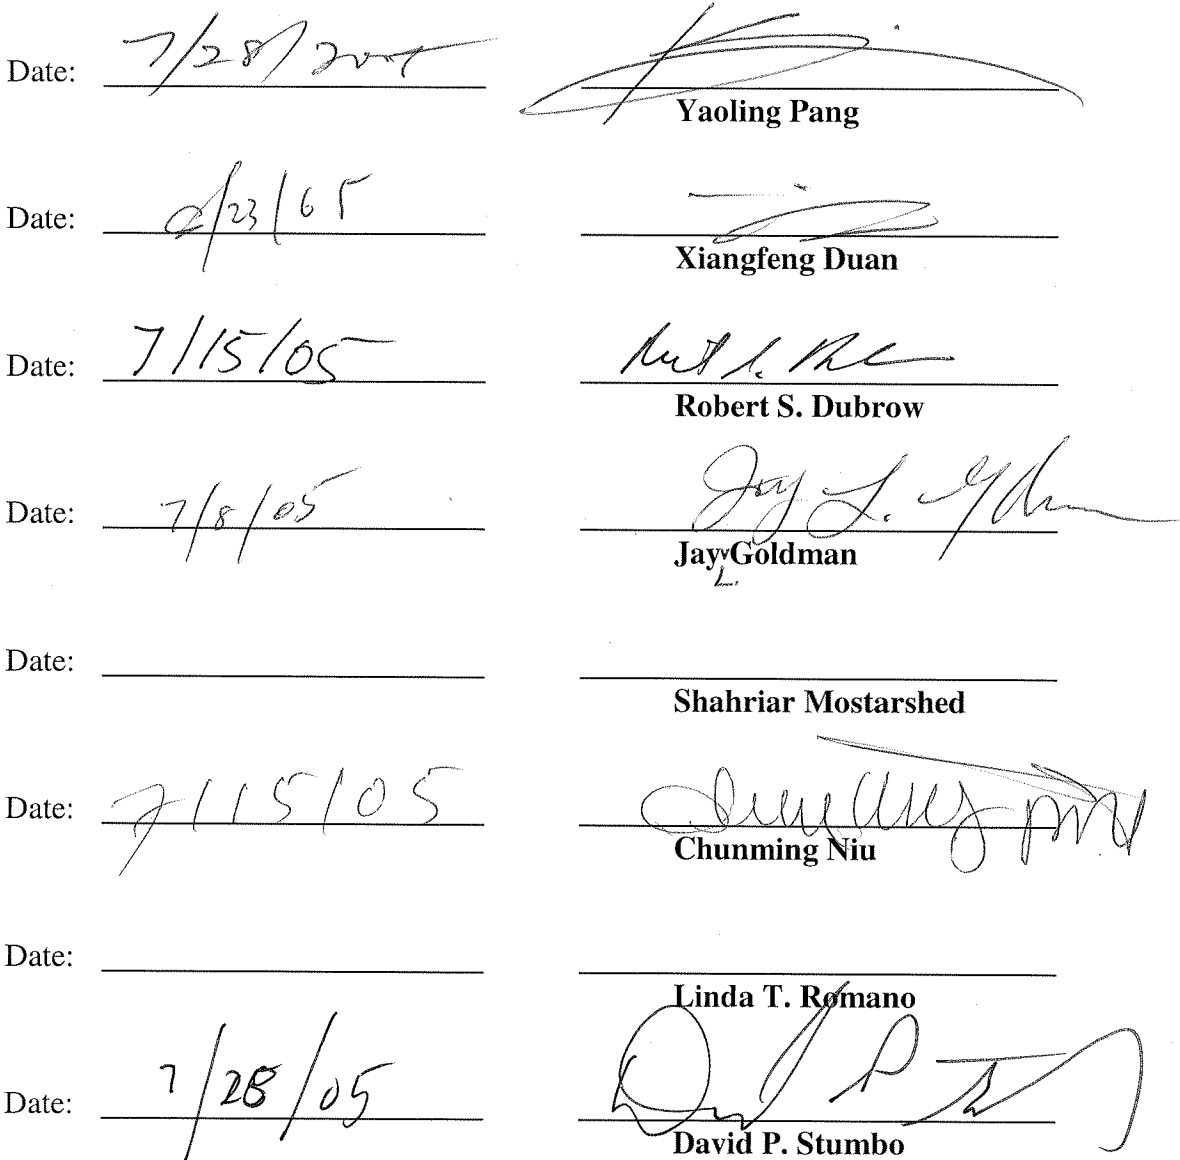 Date: 7/28/2005
Yaoling Pang
Date: /23/05
Xiangfeng Duan
Date: 7/15/05
Robert S. Dubrow
Date: 7/8/05 Jay L.
Jay Goldman
L.
Date:
Shahriar Mostarshed
Date: 7/15/05
Chunming Niu
Date:
Linda T. Romano
Date: 7/28/05
David P. Stumbo